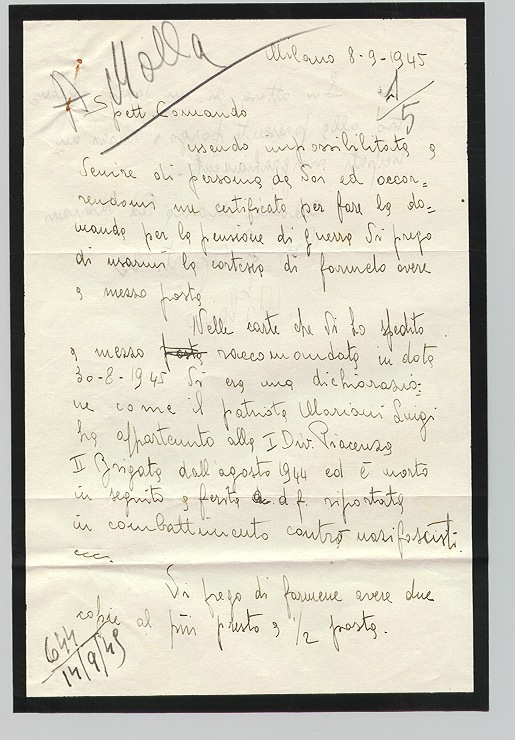 A Molla
Milano 8-9-1945
1/5
Spett Comando
essendo impossibilitata a
venire di persona da Voi ed occor=
rendomi un certificato per fare la do=
manda per la pensione di guerra Vi prego
di usarmi la cortesia di farmelo avere
a mezzo posta
Nelle carte che Vi ho spedito
a mezzo posta raccomandata in data
30-8-1945 Vi era una dichiarazio=
ne come il patriota Mariani Luigi
ha appartenuto alla I Div. Piacenza
II Brigata dall'agosto 1944 ed è morto
in seguito a ferita d.f. riportata
in combattimento contro nazifascisti.
ecc.
Vi prego di farmene avere due
copie al più presto a 1/2 posta.
644
14/9/45